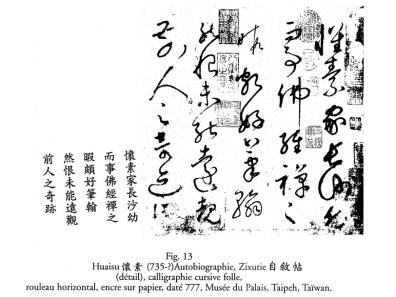 懷素家長沙幼
而事佛經禪之
暇頗好筆翰
然恨未能遠覩
前人之奇迹
懷素家長沙幼
而事佛經禪之
暇頗好筆翰
然恨未能遠觀
前人之奇跡
Fig. 13
Huaisu 懷素 (735-?)Autobiographie, Zixutie 自敘帖
(détail), calligraphie cursive folle,
rouleau horizontal, encre sur papier, daté 777, Musée du Palais, Taipeh, Taïwan.